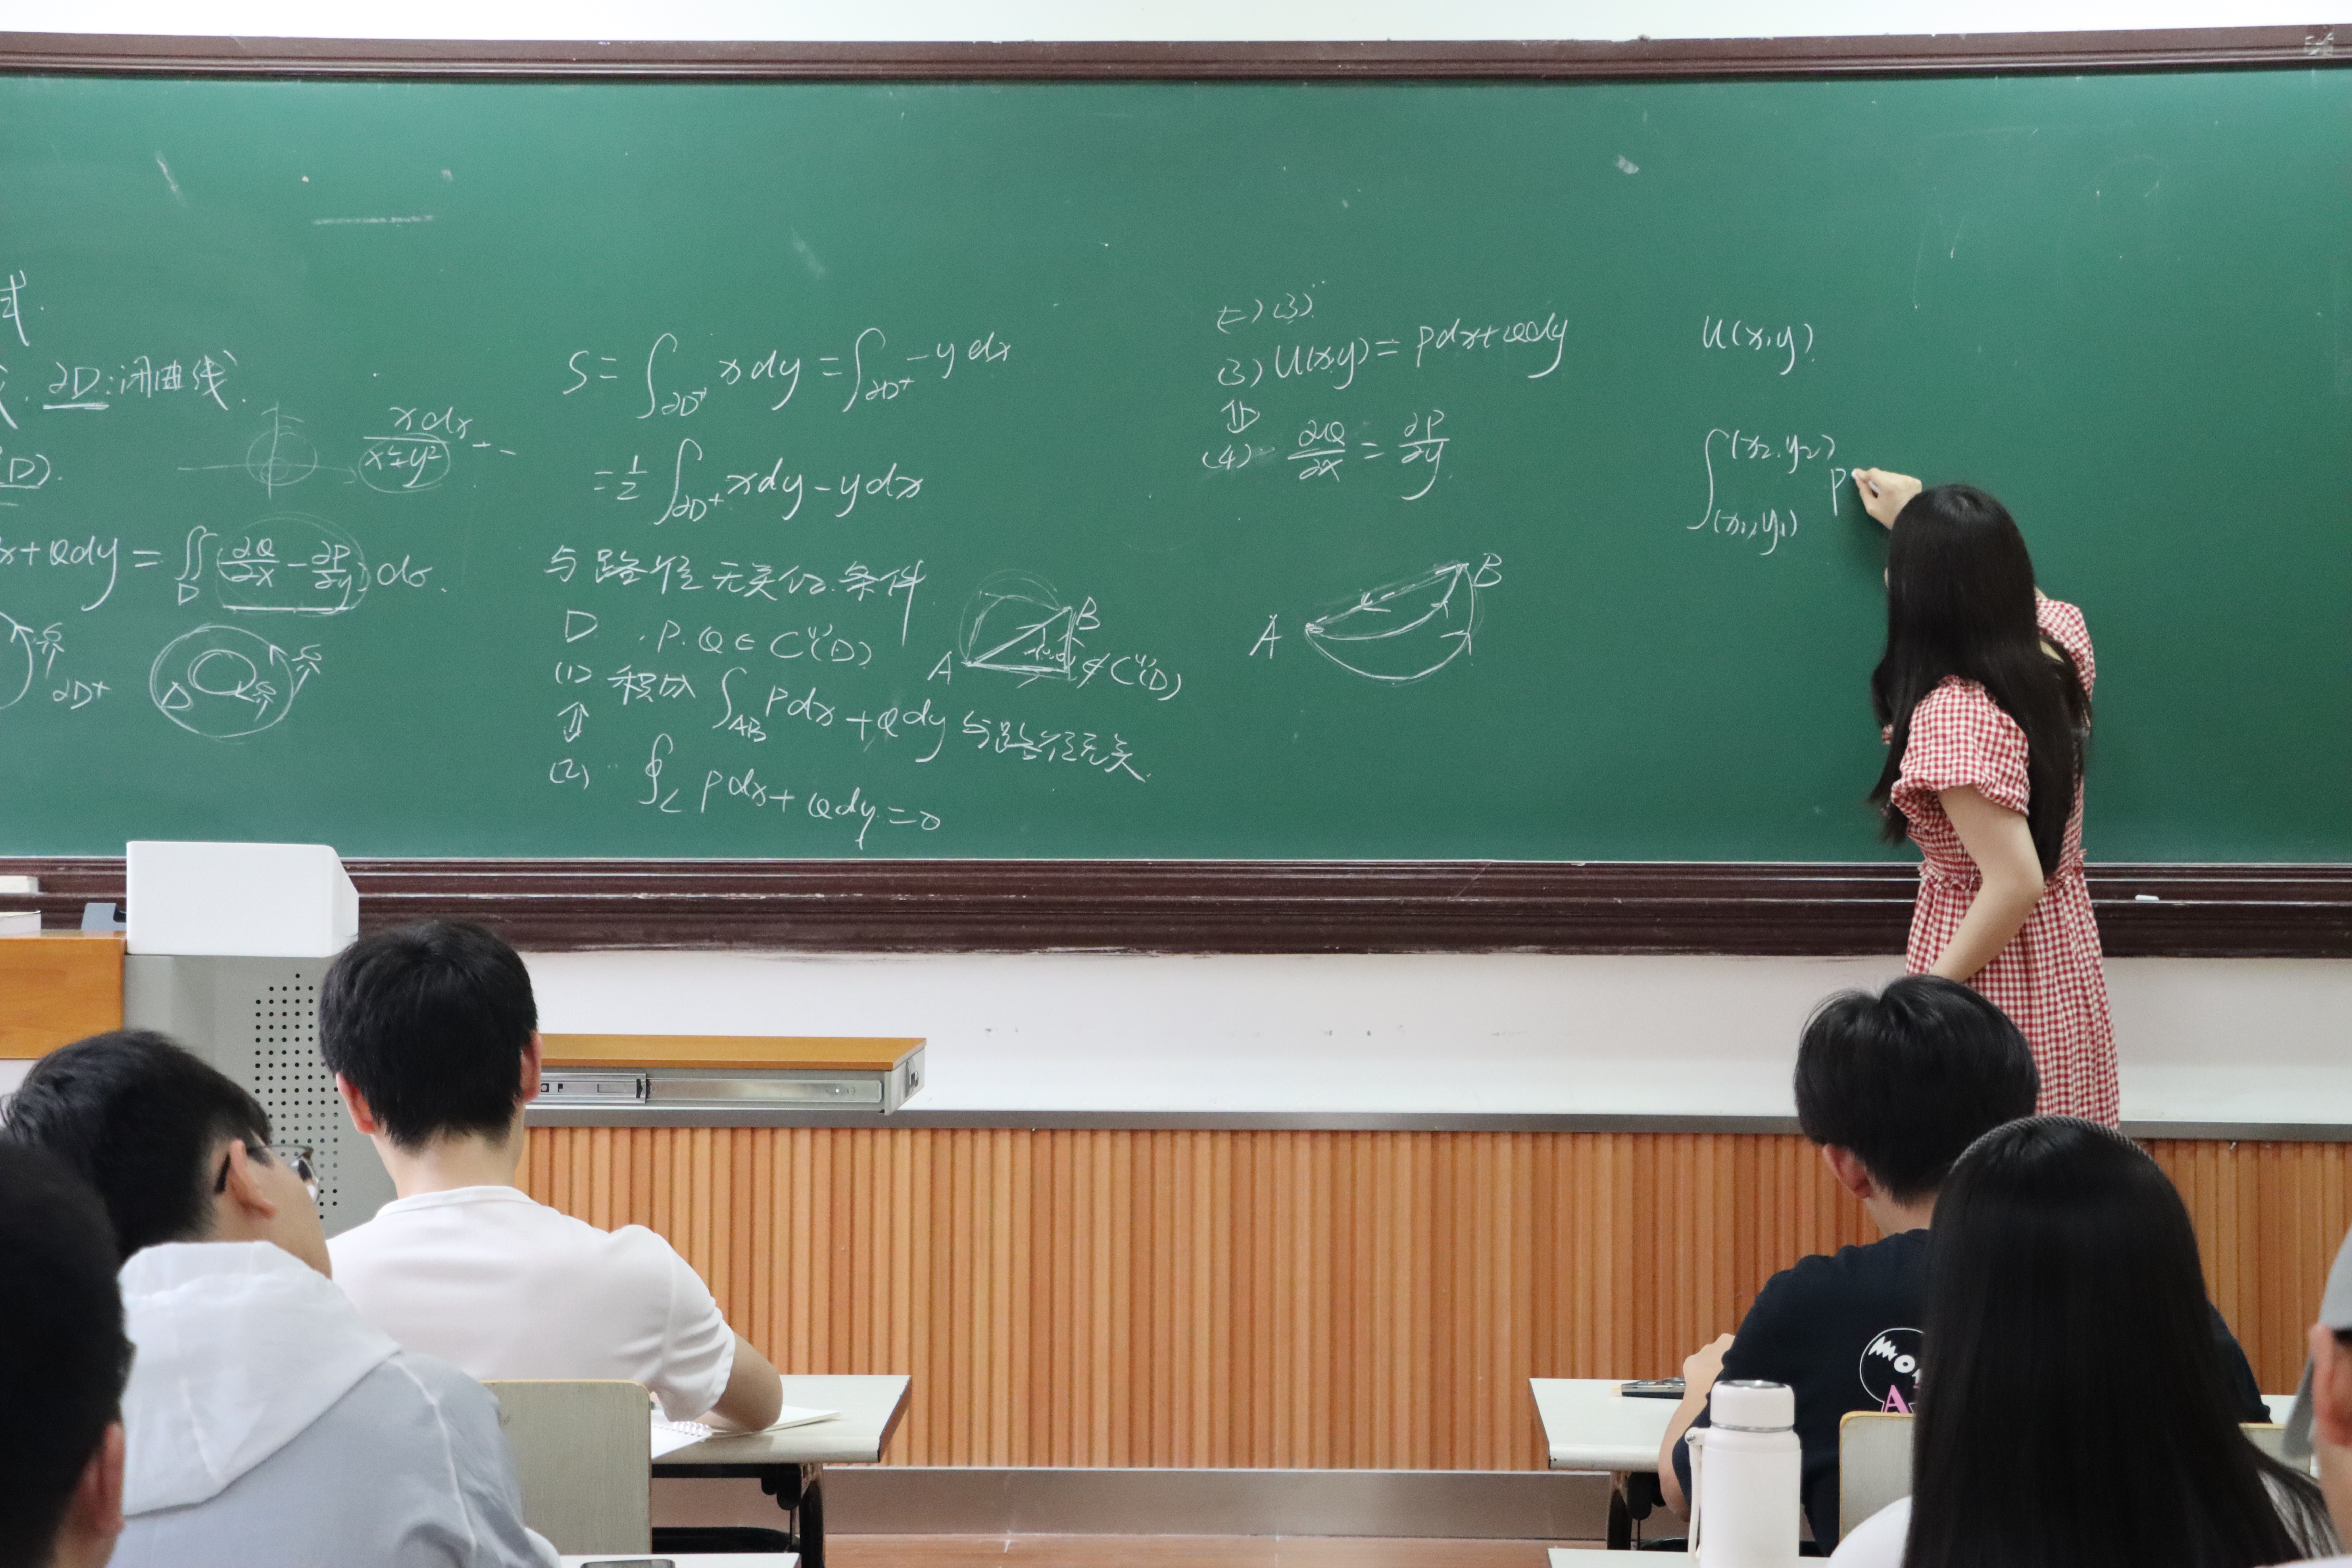 式.
∂D:闭曲线.
(D).
xdx
x²+y²
+ -
x+Qdy = ∬_D (∂Q/∂x - ∂P/∂y) dσ.
∂D⁺
D
S = ∫_{∂D⁺} x dy = ∫_{∂D⁺} -y dx
= 1/2 ∫_{∂D⁺} xdy - ydx
与路径无关的条件
D . P.Q ∈ C⁽¹⁾(D)
A B ∉ C⁽¹⁾(D)
(1) 积分 ∫_{AB} Pdx + Qdy 与路径无关.
⇕
(2) ∮_L Pdx + Qdy = 0
(3)
(3) U(x,y) = Pdx+Qdy
(4) ∂Q/∂x = ∂P/∂y.
A B
U(x,y).
∫_{(x₁,y₁)}^{(x₂,y₂)} P
MO
A